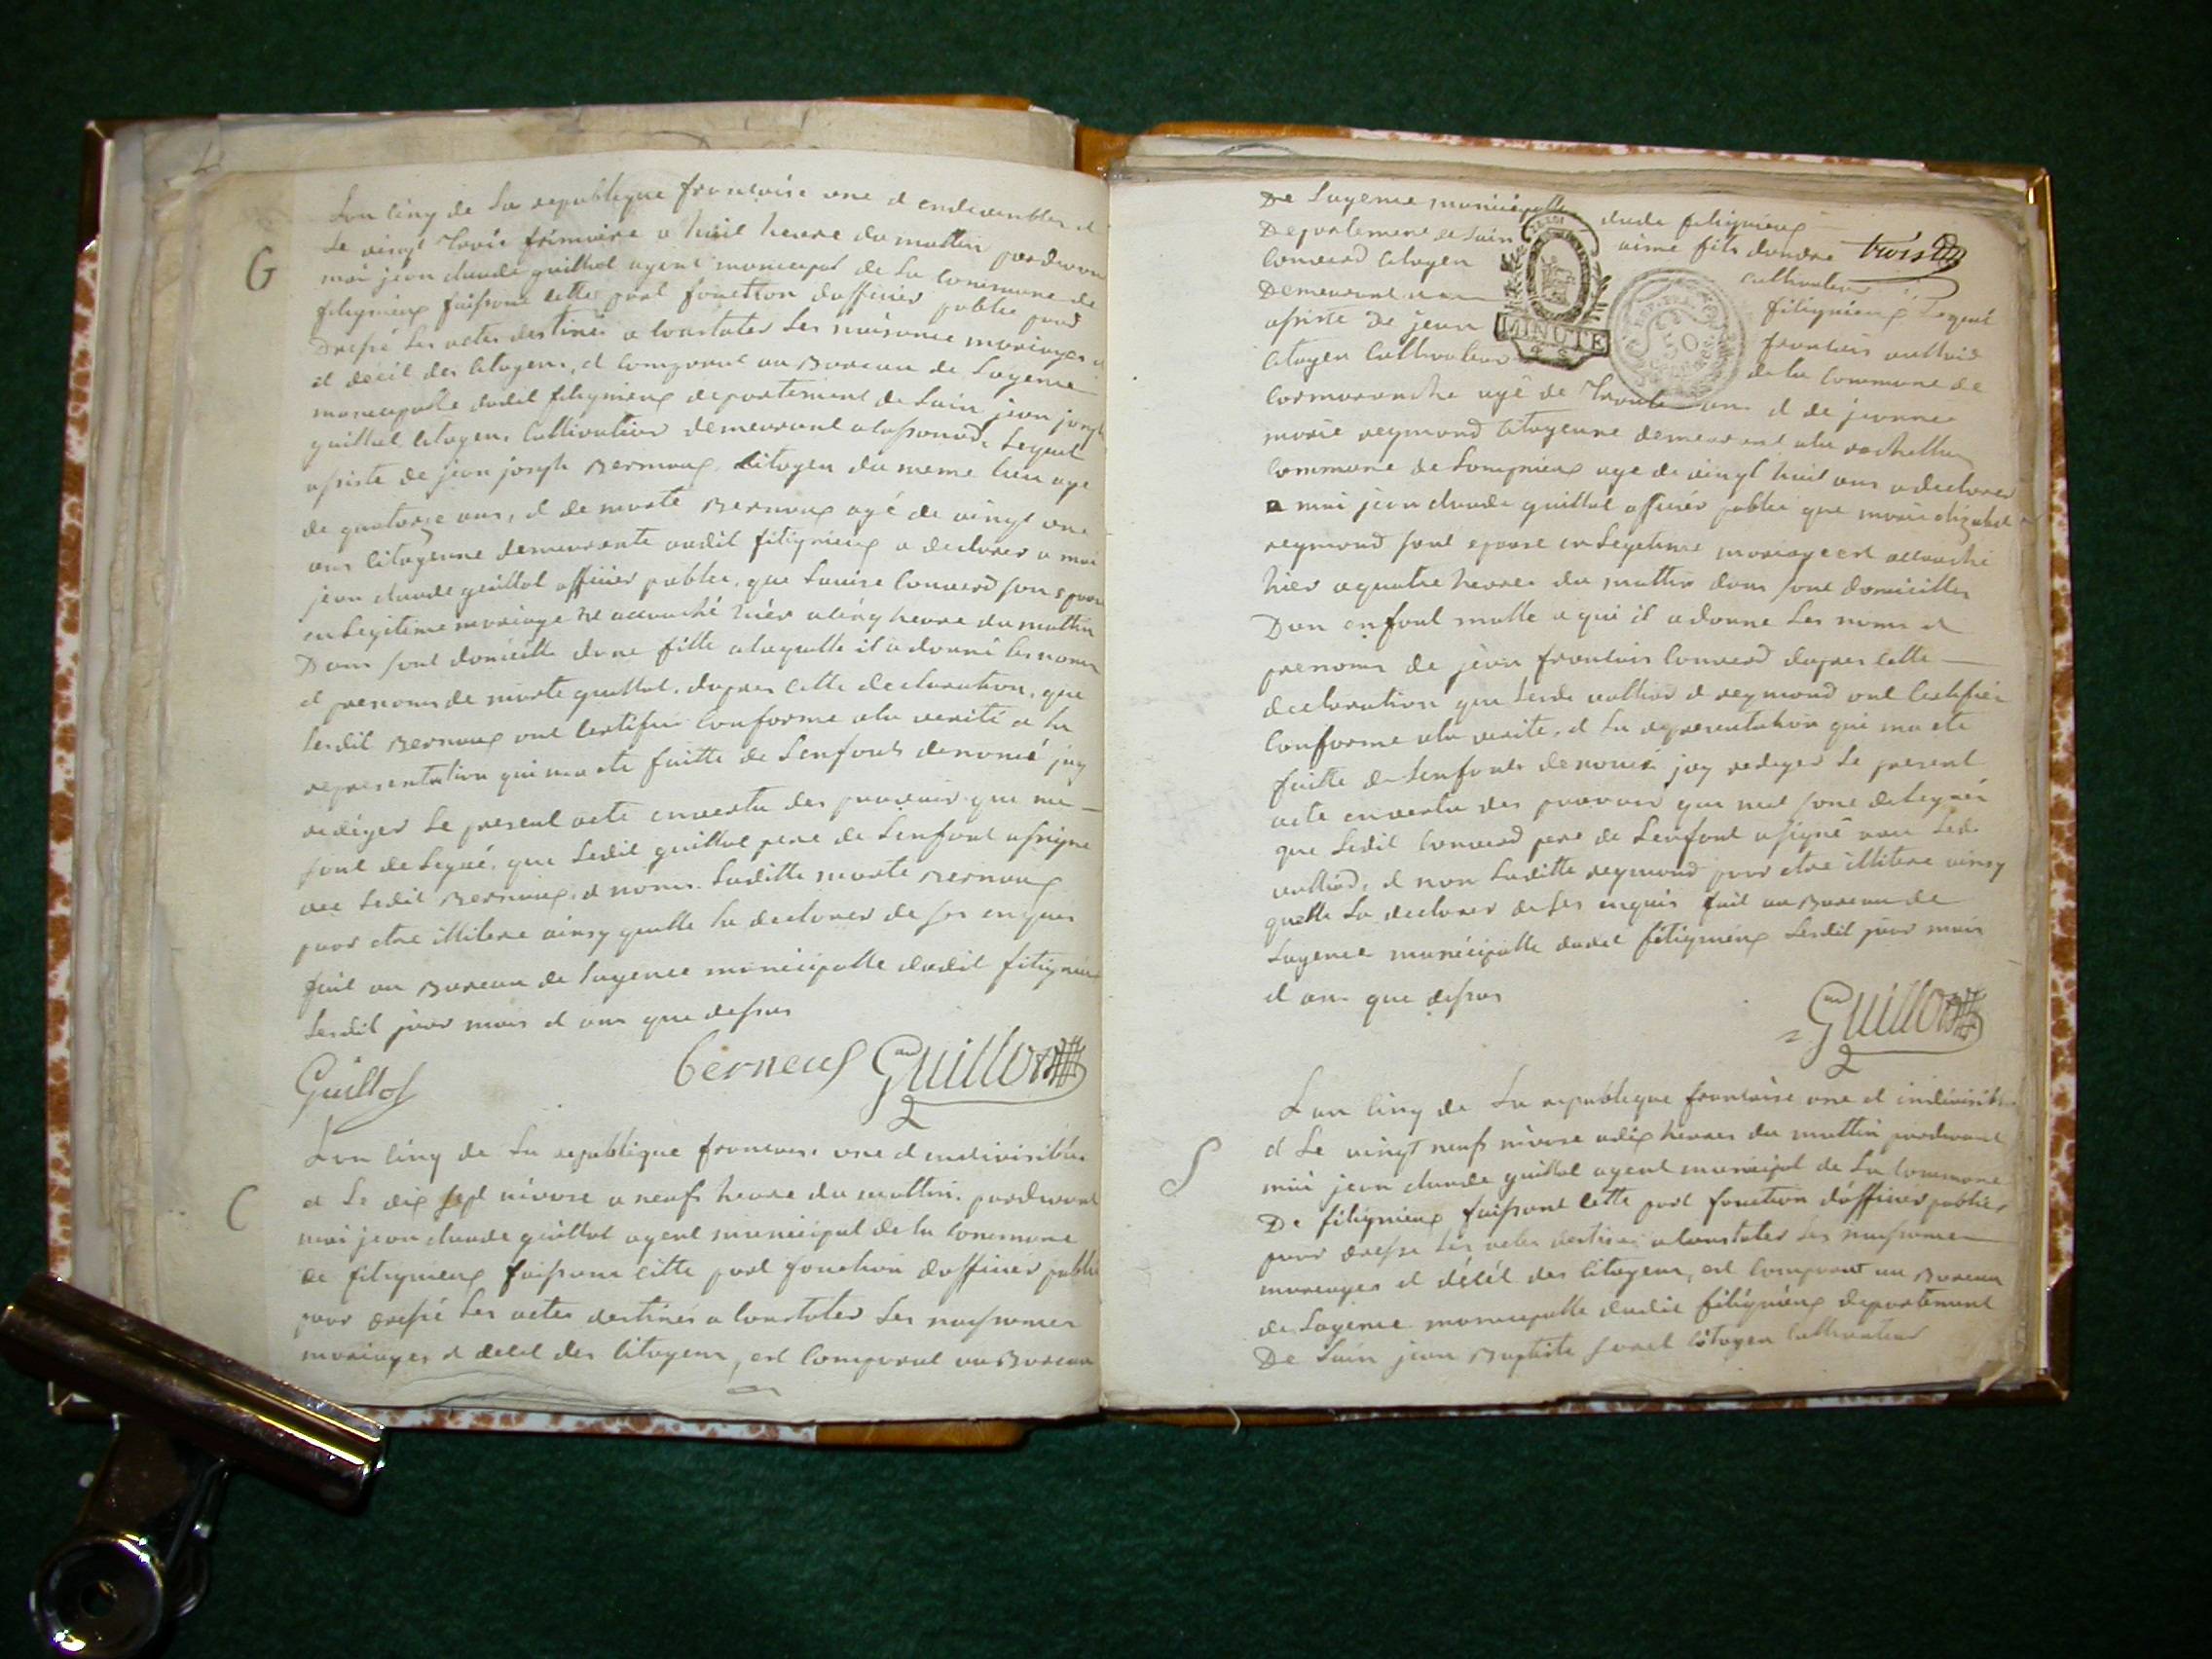 G
Lan cinq de La republique francoise une et endivisiblee et
Le vingt trois frimaire a huit heure du mattin pardevant
moi jean claude guillot agent municipal de La commune de
fitignieux faissant cette part fonction dofficier public pour
Dressé Les actes destinés a constater Les naisance mariages et
et décit des citoyens, et comparut au Bureau de Lagence
municipalle dudit fitignieux departement de Lain jean joseph
guillot citoyen Cultivateur demeurant Lequel
assiste de jean joseph Berneux citoyen du meme lieu age
de quatorze ans, et de marte Berneux agé de vingt un
ans citoyenne demeurante audit fitignieux a declarer a moi
jean claude guillot officier public, que Louise Convert son epouse
en Legitime mariage accouché hier a cinq heure du mattin
Dans sont domicille dune fille alaquelle il a donné les noms
et prenoms de marte guillot. dapres cette declaration, que
Lesdit Berneux ont certifier conforme ala verité a la
representation qui ma ete faitte de Lenfant denomé jay
rediger Le present acte envertu des pouvoirs que me
sont delegué, que Ledit guillot pere de Lenfant a signe
avec Ledit Berneux, et nom Laditte marte Berneux
pour etre illitere ainsy quelle La declarer de ses enquis
fait au Bureau de Lagence municipalle dudit fitignieux
Lesdit jour mois et ans que dessus
Guillot berneux Guillot
C
Lan cinq de La republique francoise une et endivisible
et Le dix sept nivose a neufs heure du mattin, pardevant
moi jean claude guillot agent municipal de la commune
de fitignieux faissant cette part fonction dofficier public
pour dressé Les actes destinés a constater Les naissances
mariages et décit des citoyens, est comparut au Bureau
De Lagence municipalle dudit fitignieux
Departement de Lain aime fils trois
Convert citoyen cultivateur
Demeurant fitignieux Lequel
assiste De jean francois vulliod
citoyen Cultivateur MINUTE 50 de la commune de
Cormaranche agé de trente ans et de jeanne
marie reymond citoyenne demeurant ala
commune de Songnieux age de vingt huit ans a declarer
a moi jean claude guillot officier public que marie elizabet
reymond sont epouse en Legitime mariage est accouché
hier a quatre heures du mattin dans sont domicille
Dun enfant malle a qui il a donne Les noms et
prenoms de jean francois Convert dapres cette
declaration que Lesdi vulliod et reymond ont certifier
Conforme ala verite, et La representation qui ma ete
faitte de Lenfants denomé jay rediger Le present
acte envertu des pouvoir que me sont delegués
que Ledit Convert pere de Lenfant a signé Led.
vulliod, et non Laditte reymond pour etre illitere ainsy
quelle La declarer de ses enquis fait au Bureau de
Lagence municipalle dudit fitignieux Lesdit jour mois
et ans que dessus
Guillot
S
Lan cinq de La republique francoise une et indivisible
et Le vingt neufs nivose a dix heures du mattin pardevant
moi jean claude guillot agent municipal de La commune
De fitignieux faissant cette part fonction dofficier public
pour dresse Les actes destinés a constater Les naissances
mariages et décét des citoyens, est comparut au Bureau
de Lagence municipalle dudit fitignieux departement
De Lain jean Baptiste citoyen cultivateur